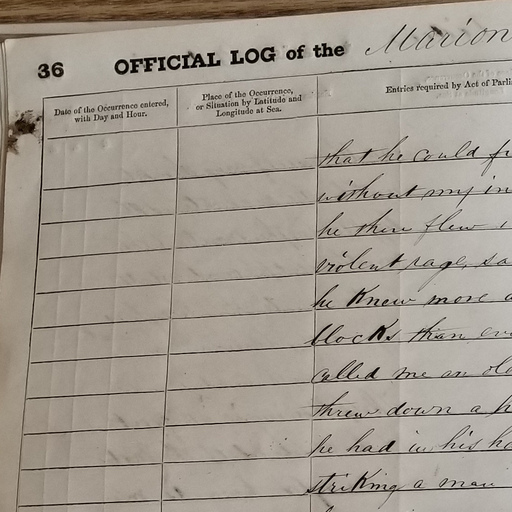 36 OFFICIAL LOG of the Marion
Date of the Occurrence entered, with Day and Hour.
Place of the Occurrence, or Situation by Latitude and Longitude at Sea.
Entries required by Act of Parli
that he could
without my in
he then flew
violent rage, sa
he knew more
blocks than ev
called me an old
threw down a
he had in his h
striking a man